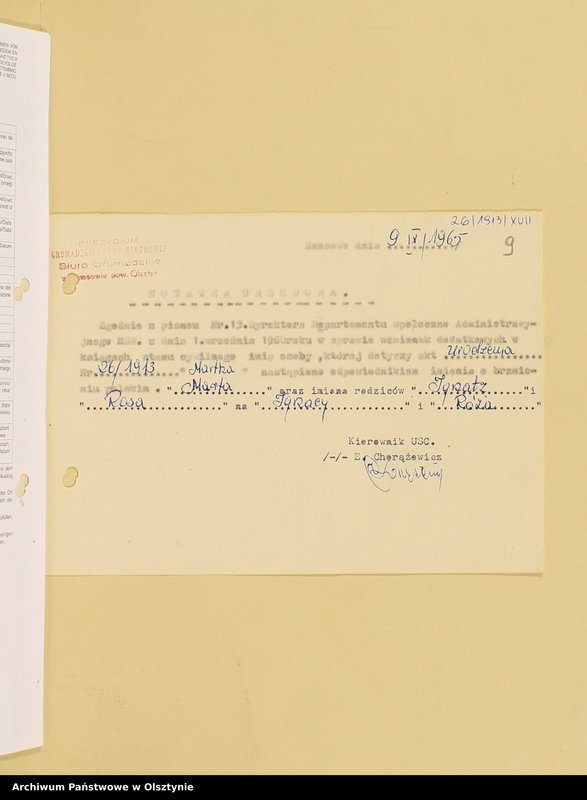 26/1913/XVII
PREZYDIUM
GROMADZKIEJ RADY NARODOWEJ
Biuro Gromadzkie
pow. Olsztyn
dnia 9 IX/1965
9
NOTATKA URZĘDOWA.
Zgodnie z pismem Nr.13.Dyrektora Departamentu Społeczno Administracy-
jnego MSW. z dnia 1.września 1965roku w sprawie wzmianek dodatkowych w
księgach stanu cywilnego imię osoby ,której dotyczy akt urodzenia
Nr. 26/1913 " Martha " zastąpione odpowiednikiem imienia o brzmie-
niu polskim . " Marta " oraz imiona rodziców " Ignatz "i
" Rosa " na " Ignacy " i " Róża "
Kierownik USC.
/-/- E. Chorążewicz
Archiwum Państwowe w Olsztynie